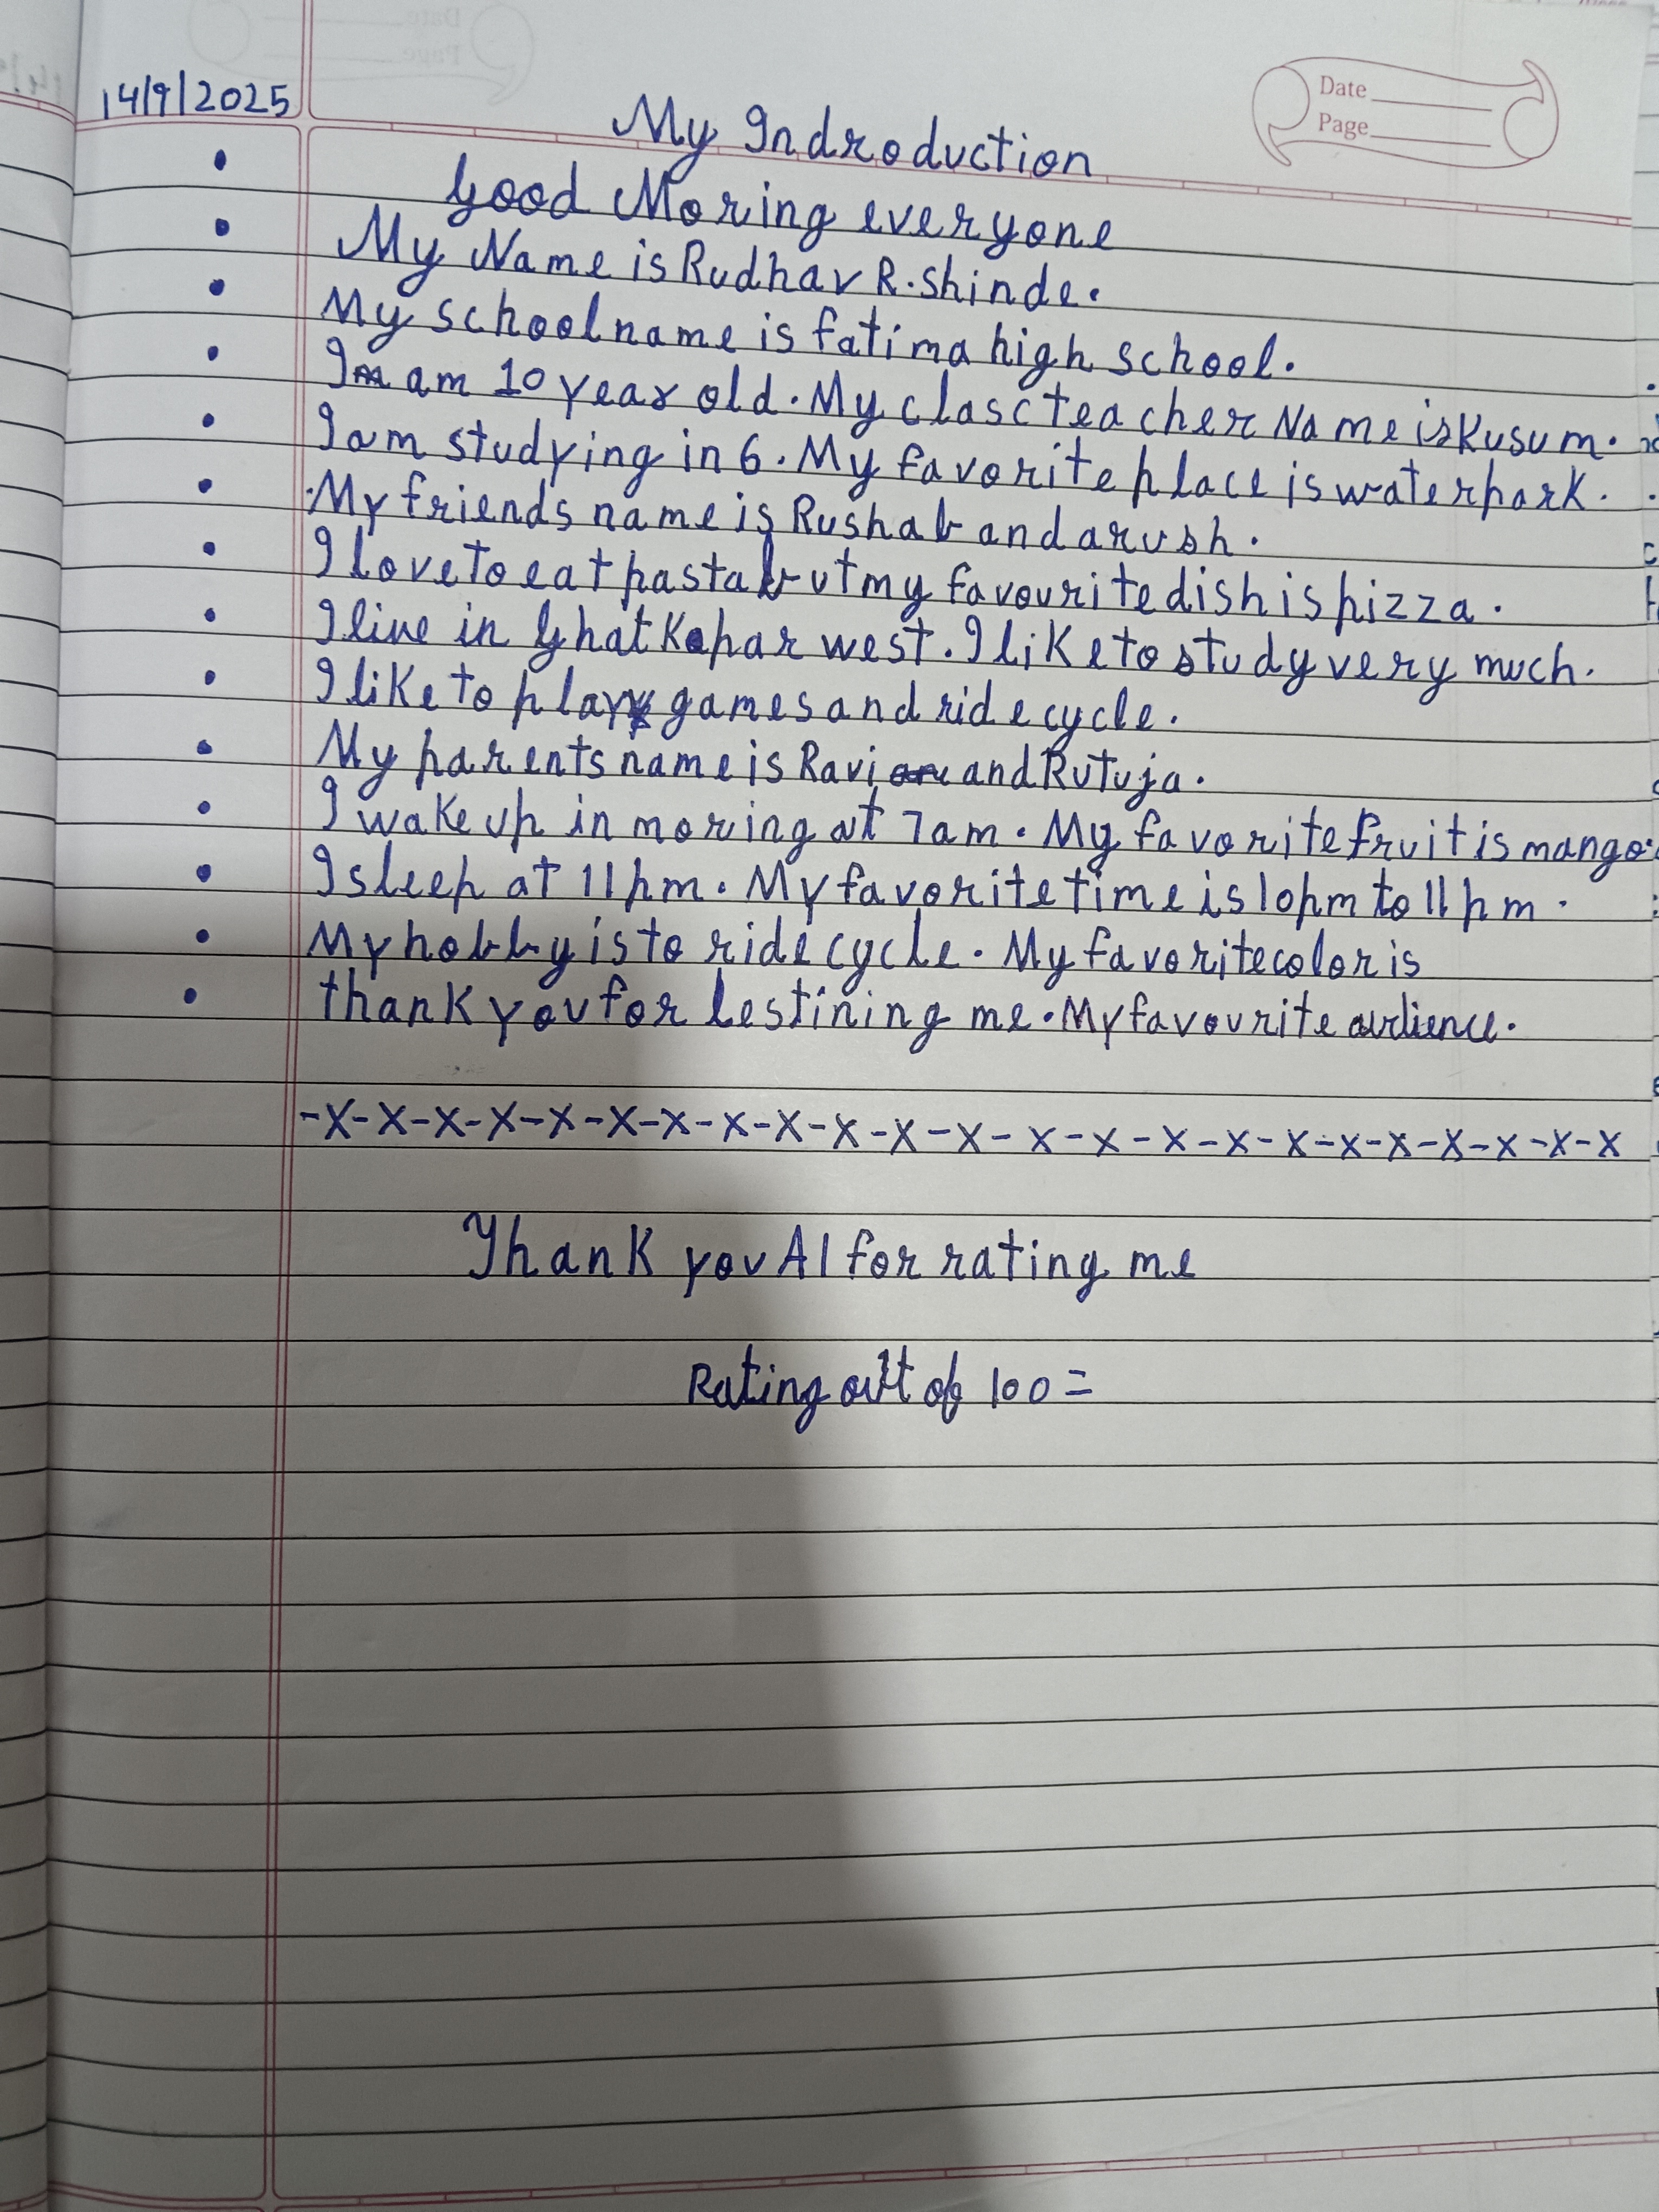 14/9/2025
Date
Page
My Indroduction
Good Moring everyone
My Name is Rudhav R. Shinde.
My school name is fatima high school.
I am 10 year old. My clasc teacher Name is Kusum.
I am studying in 6. My favorite place is waterpark.
My friends name is Rushab and arush.
I love to eat pasta but my favourite dish is pizza.
I live in Ghatkopar west. I like to study very much.
I like to play games and ride cycle.
My parents name is Ravi and Rutuja.
I wake up in moring at 7am. My favorite fruit is mango.
I sleep at 11pm. My favorite time is 10pm to 11pm.
My hobby is to ride cycle. My favorite color is
thank you for lestining me. My favourite audience.
-x-x-x-x-x-x-x-x-x-x-x-x-x-x-x-x-x-x-x-x-x-x-x
Thank you AI for rating me
Rating out of 100 =